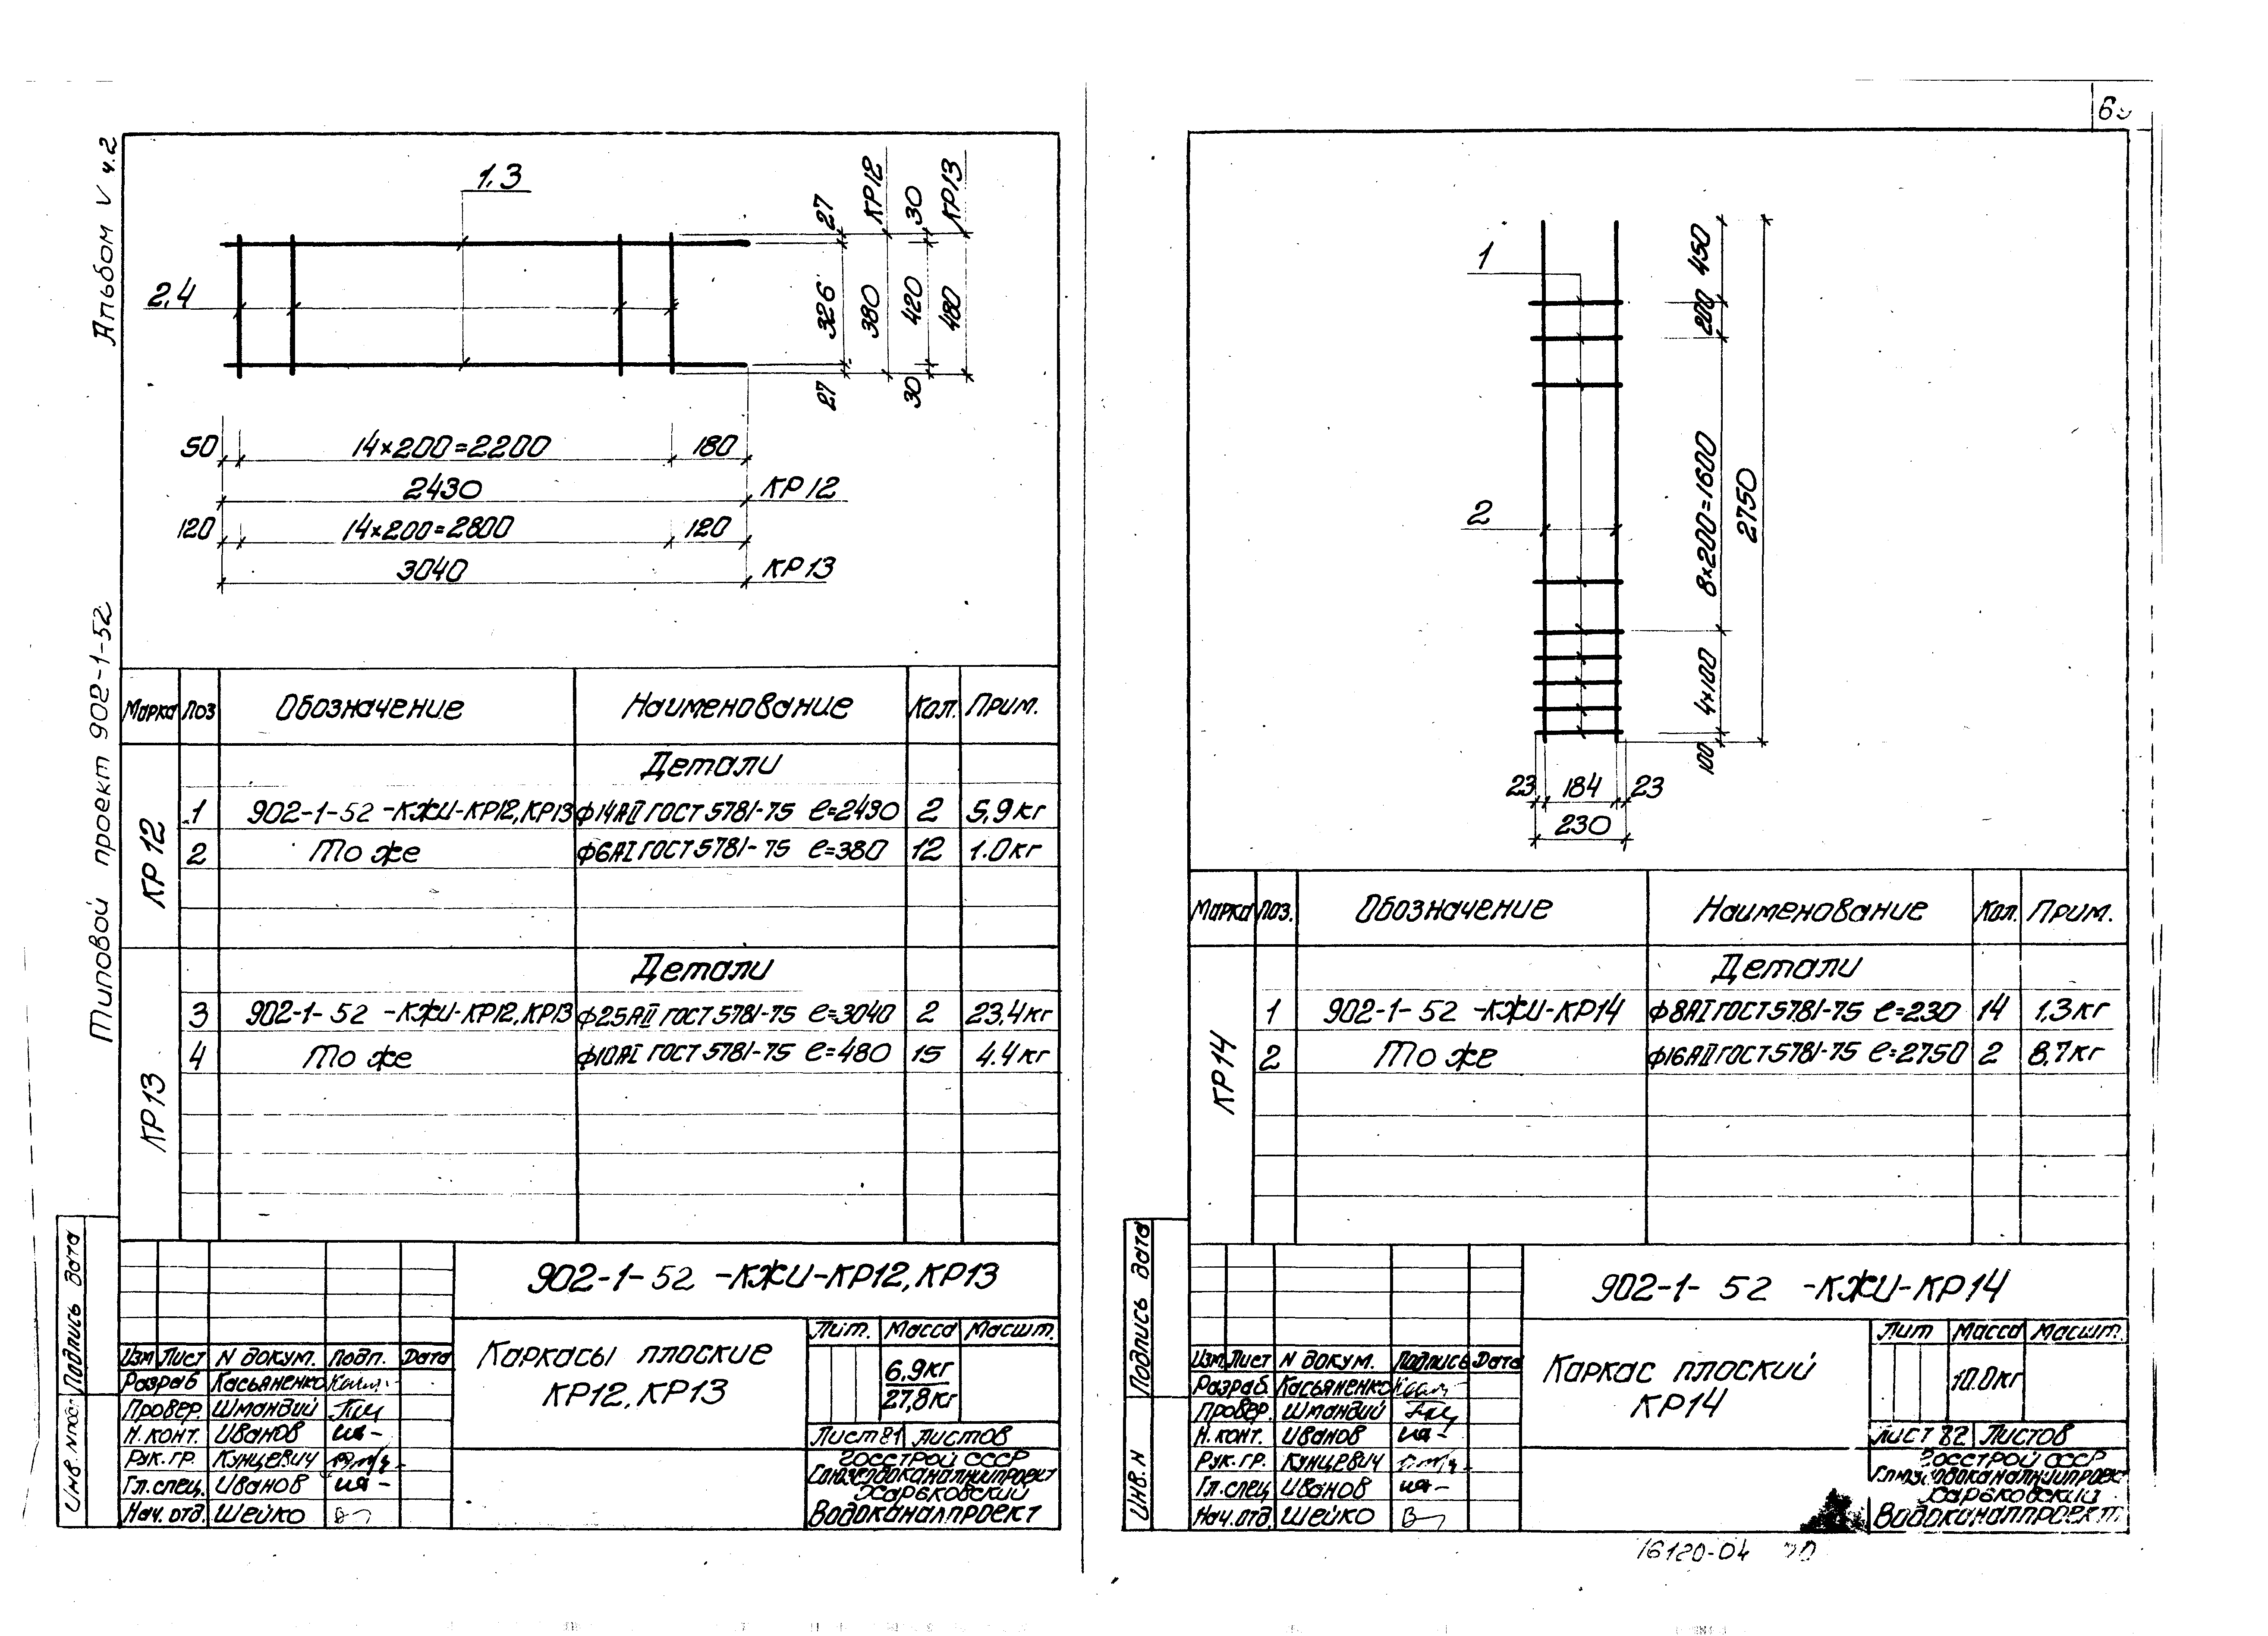 Альбом V ч.2
Типовой проект 902-1-52
1.3
2.4
27
КР12
30
КР13
326
380
420
480
27
30
50
14×200=2200
180
2430
КР12
120
14×200=2800
120
3040
КР13
Марка Поз Обозначение Наименование Кол. Прим.
КР12
Детали
1 902-1-52 -КЖИ-КР12,КР13 ф14АII ГОСТ 5781-75 ℓ=2430 2 5,9кг
2 То же ф6АI ГОСТ 5781-75 ℓ=380 12 1.0кг
КР13
Детали
3 902-1-52 -КЖИ-КР12,КР13 ф25АII ГОСТ 5781-75 ℓ=3040 2 23,4кг
4 То же ф10АI ГОСТ 5781-75 ℓ=480 15 4.4кг
902-1-52 -КЖИ-КР12,КР13
Каркасы плоские
КР12,КР13
Лит. Масса Масшт.
6,9кг
27,8кг
Лист 81 Листов
Госстрой СССР
Союзводоканалниипроект
Харьковский
Водоканалпроект
Изм Лист N докум. Подп. Дата
Разраб Касьяненко
Провер. Шмандий
Н.конт. Иванов
Рук.гр. Кунцевич
Гл.спец. Иванов
Нач.отд. Шейко
Подпись дата
Инв. N
6
1
2
450
200
8×200=1600
2750
4×100
100
23 184 23
230
Марка Поз. Обозначение Наименование Кол. Прим.
КР14
Детали
1 902-1-52 -КЖИ-КР14 ф8АI ГОСТ 5781-75 ℓ=230 14 1.3кг
2 То же ф16АII ГОСТ 5781-75 ℓ=2750 2 8,7кг
902-1-52 -КЖИ-КР14
Каркас плоский
КР14
Лит Масса Масшт.
10.0кг
Лист 82 Листов
Госстрой СССР
Союзводоканалниипроект
Харьковский
Водоканалпроект
Изм Лист N докум. Подпись Дата
Разраб. Касьяненко
Провер. Шмандий
Н.конт. Иванов
Рук.гр. Кунцевич
Гл.спец Иванов
Нач.отд. Шейко
Подпись дата
Инв. N
16120-04